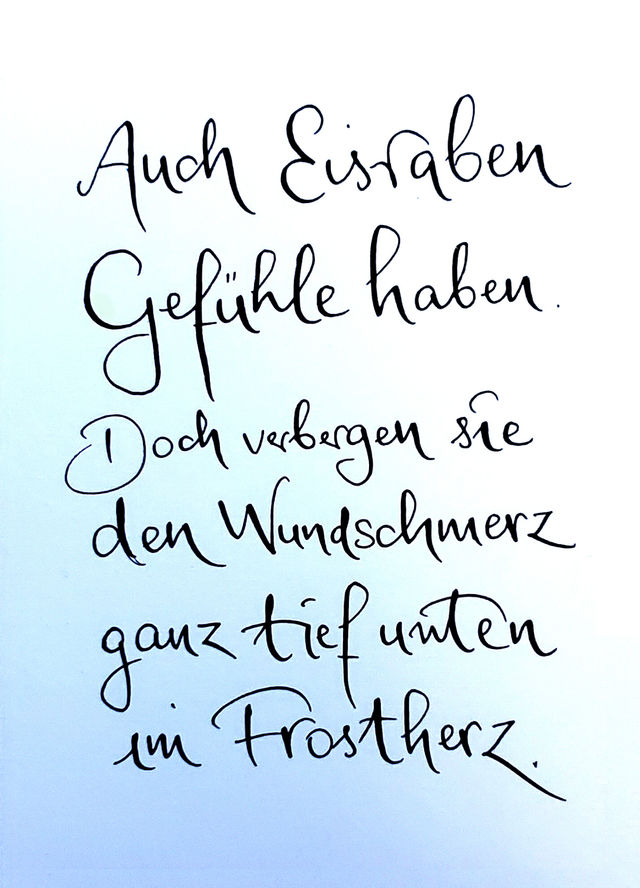 Auch Eisraben
Gefühle haben.
Doch verbergen sie
den Wundschmerz
ganz tief unten
im Frostherz.